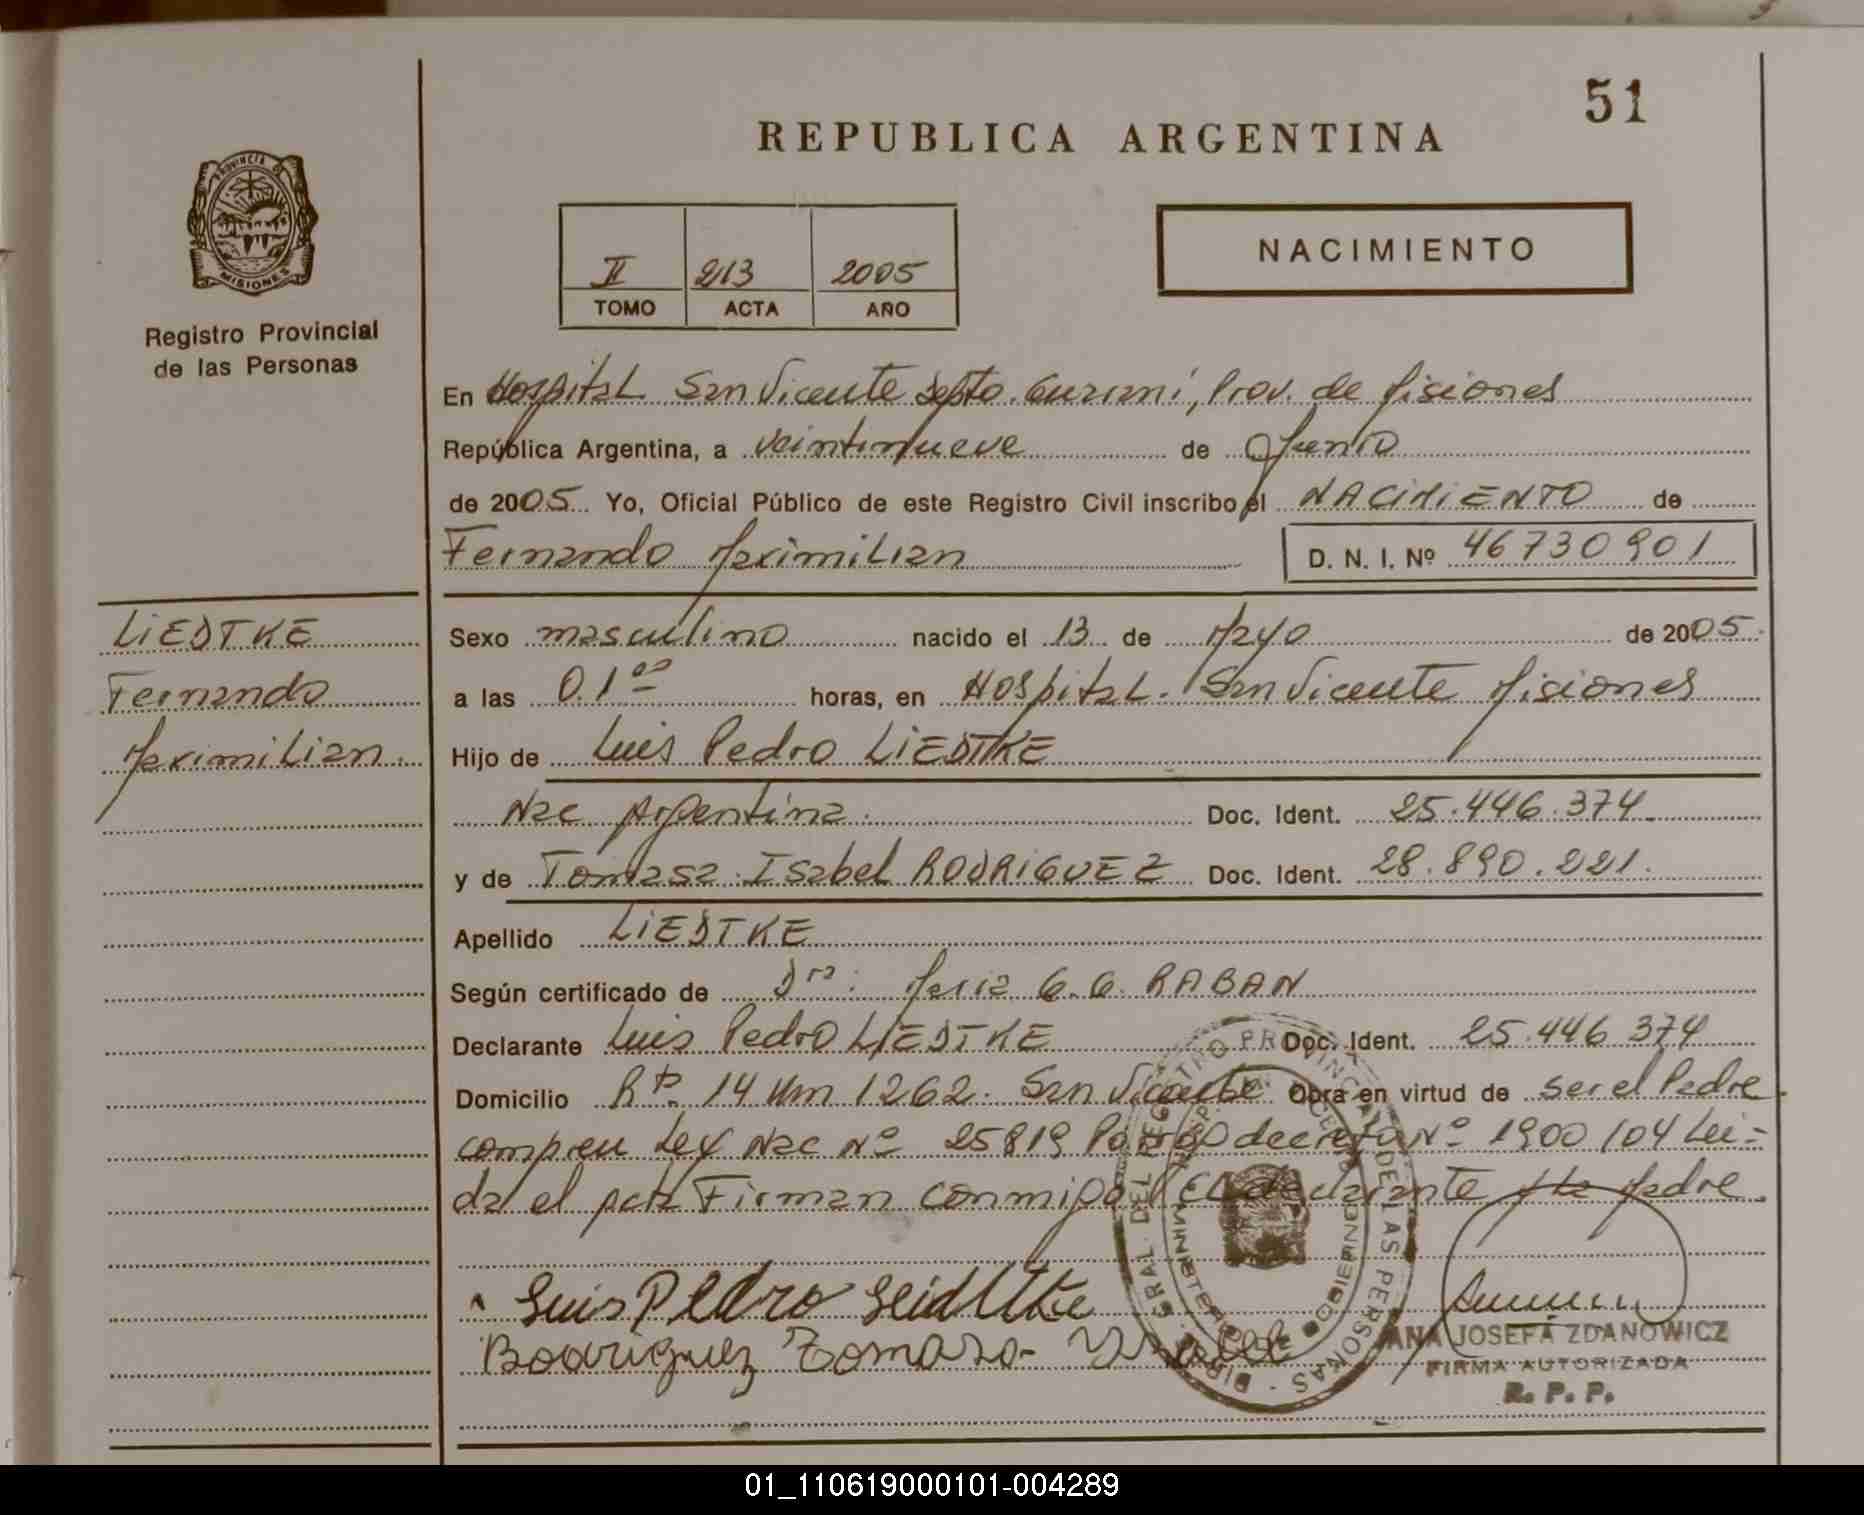 51
REPUBLICA ARGENTINA
PROVINCIA DE MISIONES
Registro Provincial
de las Personas
II 213 2005
TOMO ACTA AÑO
NACIMIENTO
En Hospital San Vicente Depto. Guaraní, Prov. de Misiones
República Argentina, a veintinueve de Junio
de 2005. Yo, Oficial Público de este Registro Civil inscribo el NACIMIENTO de
Fernando Maximilian D. N. I. Nº 46730901
LIEDTKE
Fernando
Maximilian.
Sexo masculino nacido el 13 de Mayo de 2005.
a las 0.1 00 horas, en Hospital. San Vicente Misiones
Hijo de Luis Pedro LIEDTKE
Nac Argentina. Doc. Ident. 25.446.374.
y de Tomasa Isabel RODRIGUEZ Doc. Ident. 28.890.221.
Apellido LIEDTKE
Según certificado de Dra: Maria G.G. RABAN
Declarante Luis Pedro LIEDTKE Doc. Ident. 25.446.374
Domicilio Rta. 14 Km 1262. San Vicente Obra en virtud de ser el Padre
compren Ley Nac Nº 25819 decreto Nº 1900/04 Lei-
da el acta Firman conmigo el declarante y la Madre.
Luis Pedro Leidtke
Rodriguez Tomasa Ysabel
DIREC. GRAL. DEL REGISTRO PROVINCIAL DE LAS PERSONAS
MINISTERIO DE GOBIERNO
ANA JOSEFA ZDANOWICZ
FIRMA AUTORIZADA
R. P. P.
01_110619000101-004289